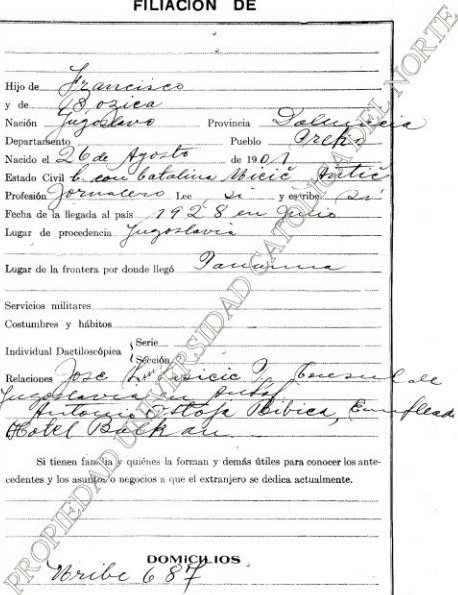 FILIACION DE
Hijo de Francisco
y de Bozica
Nación Jugoslavo Provincia Dalmacia
Departamento Pueblo
Nacido el 26 de Agosto de 1901
Estado Civil c. con Catalina Micic Antic
Profesión Jornalero Lee si y escribe si
Fecha de la llegada al país 1928 en Julio
Lugar de procedencia Jugoslavia
Lugar de la frontera por donde llegó Panama
Servicios militares
Costumbres y hábitos
Individual Dactiloscópica Serie
Sección
Relaciones Jose Consul de
Jugoslavia en Antof
Antonio Ostoja Bibica, Empleado
Hotel Balkan
Si tienen familia y quiénes la forman y demás útiles para conocer los ante-
cedentes y los asuntos o negocios a que el extranjero se dedica actualmente.
DOMICILIOS
Uribe 687
PROPIEDAD UNIVERSIDAD CATOLICA DEL NORTE